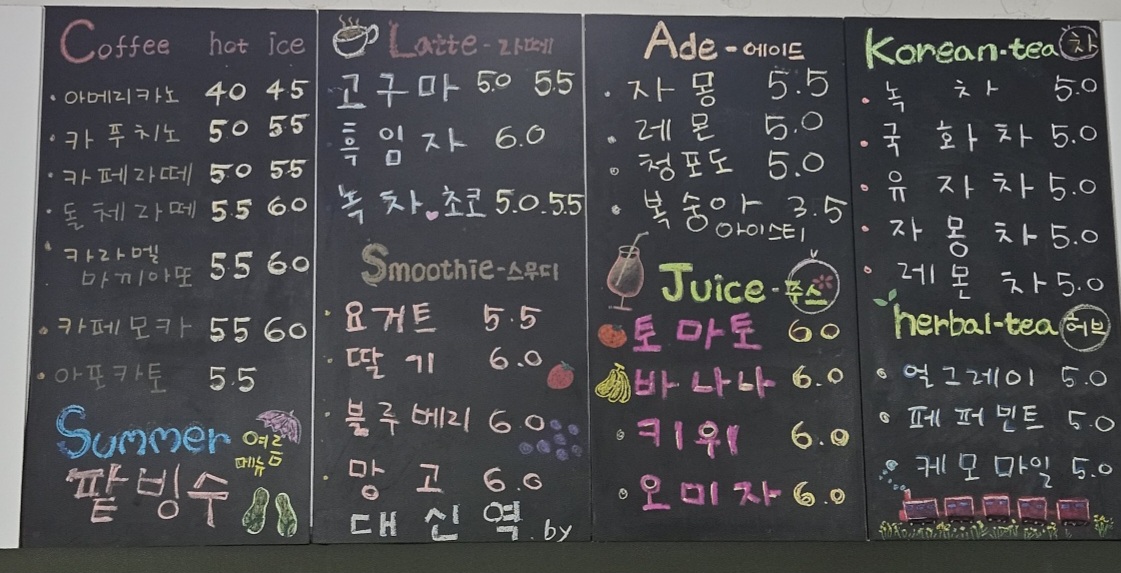 Coffee hot ice
· 아메리카노 40 45
· 카푸치노 50 55
· 카페라떼 50 55
· 돌체라떼 5.5 6.0
· 카라멜
마끼아또 55 60
· 카페모카 55 60
· 아포카토 5.5
Summer 여름
메뉴
팥빙수
Latte - 라떼
고구마 5.0 5.5
흑임자 6.0
녹차♥초코 5.0 . 5.5
Smoothie - 스무디
· 요거트 5.5
· 딸기 6.0
· 블루베리 6.0
· 망고 6.0
대신역. by
Ade - 에이드
· 자몽 5.5
· 레몬 5.0
· 청포도 5.0
· 복숭아 3.5
아이스티
Juice - 주스
토마토 6.0
바나나 6.0
키위 6.0
오미자 6.0
Korean-tea 차
· 녹차 5.0
· 국화차 5.0
· 유자차 5.0
· 자몽차 5.0
· 레몬차 5.0
herbal-tea 허브
· 얼그레이 5.0
· 페퍼민트 5.0
· 케모마일 5.0